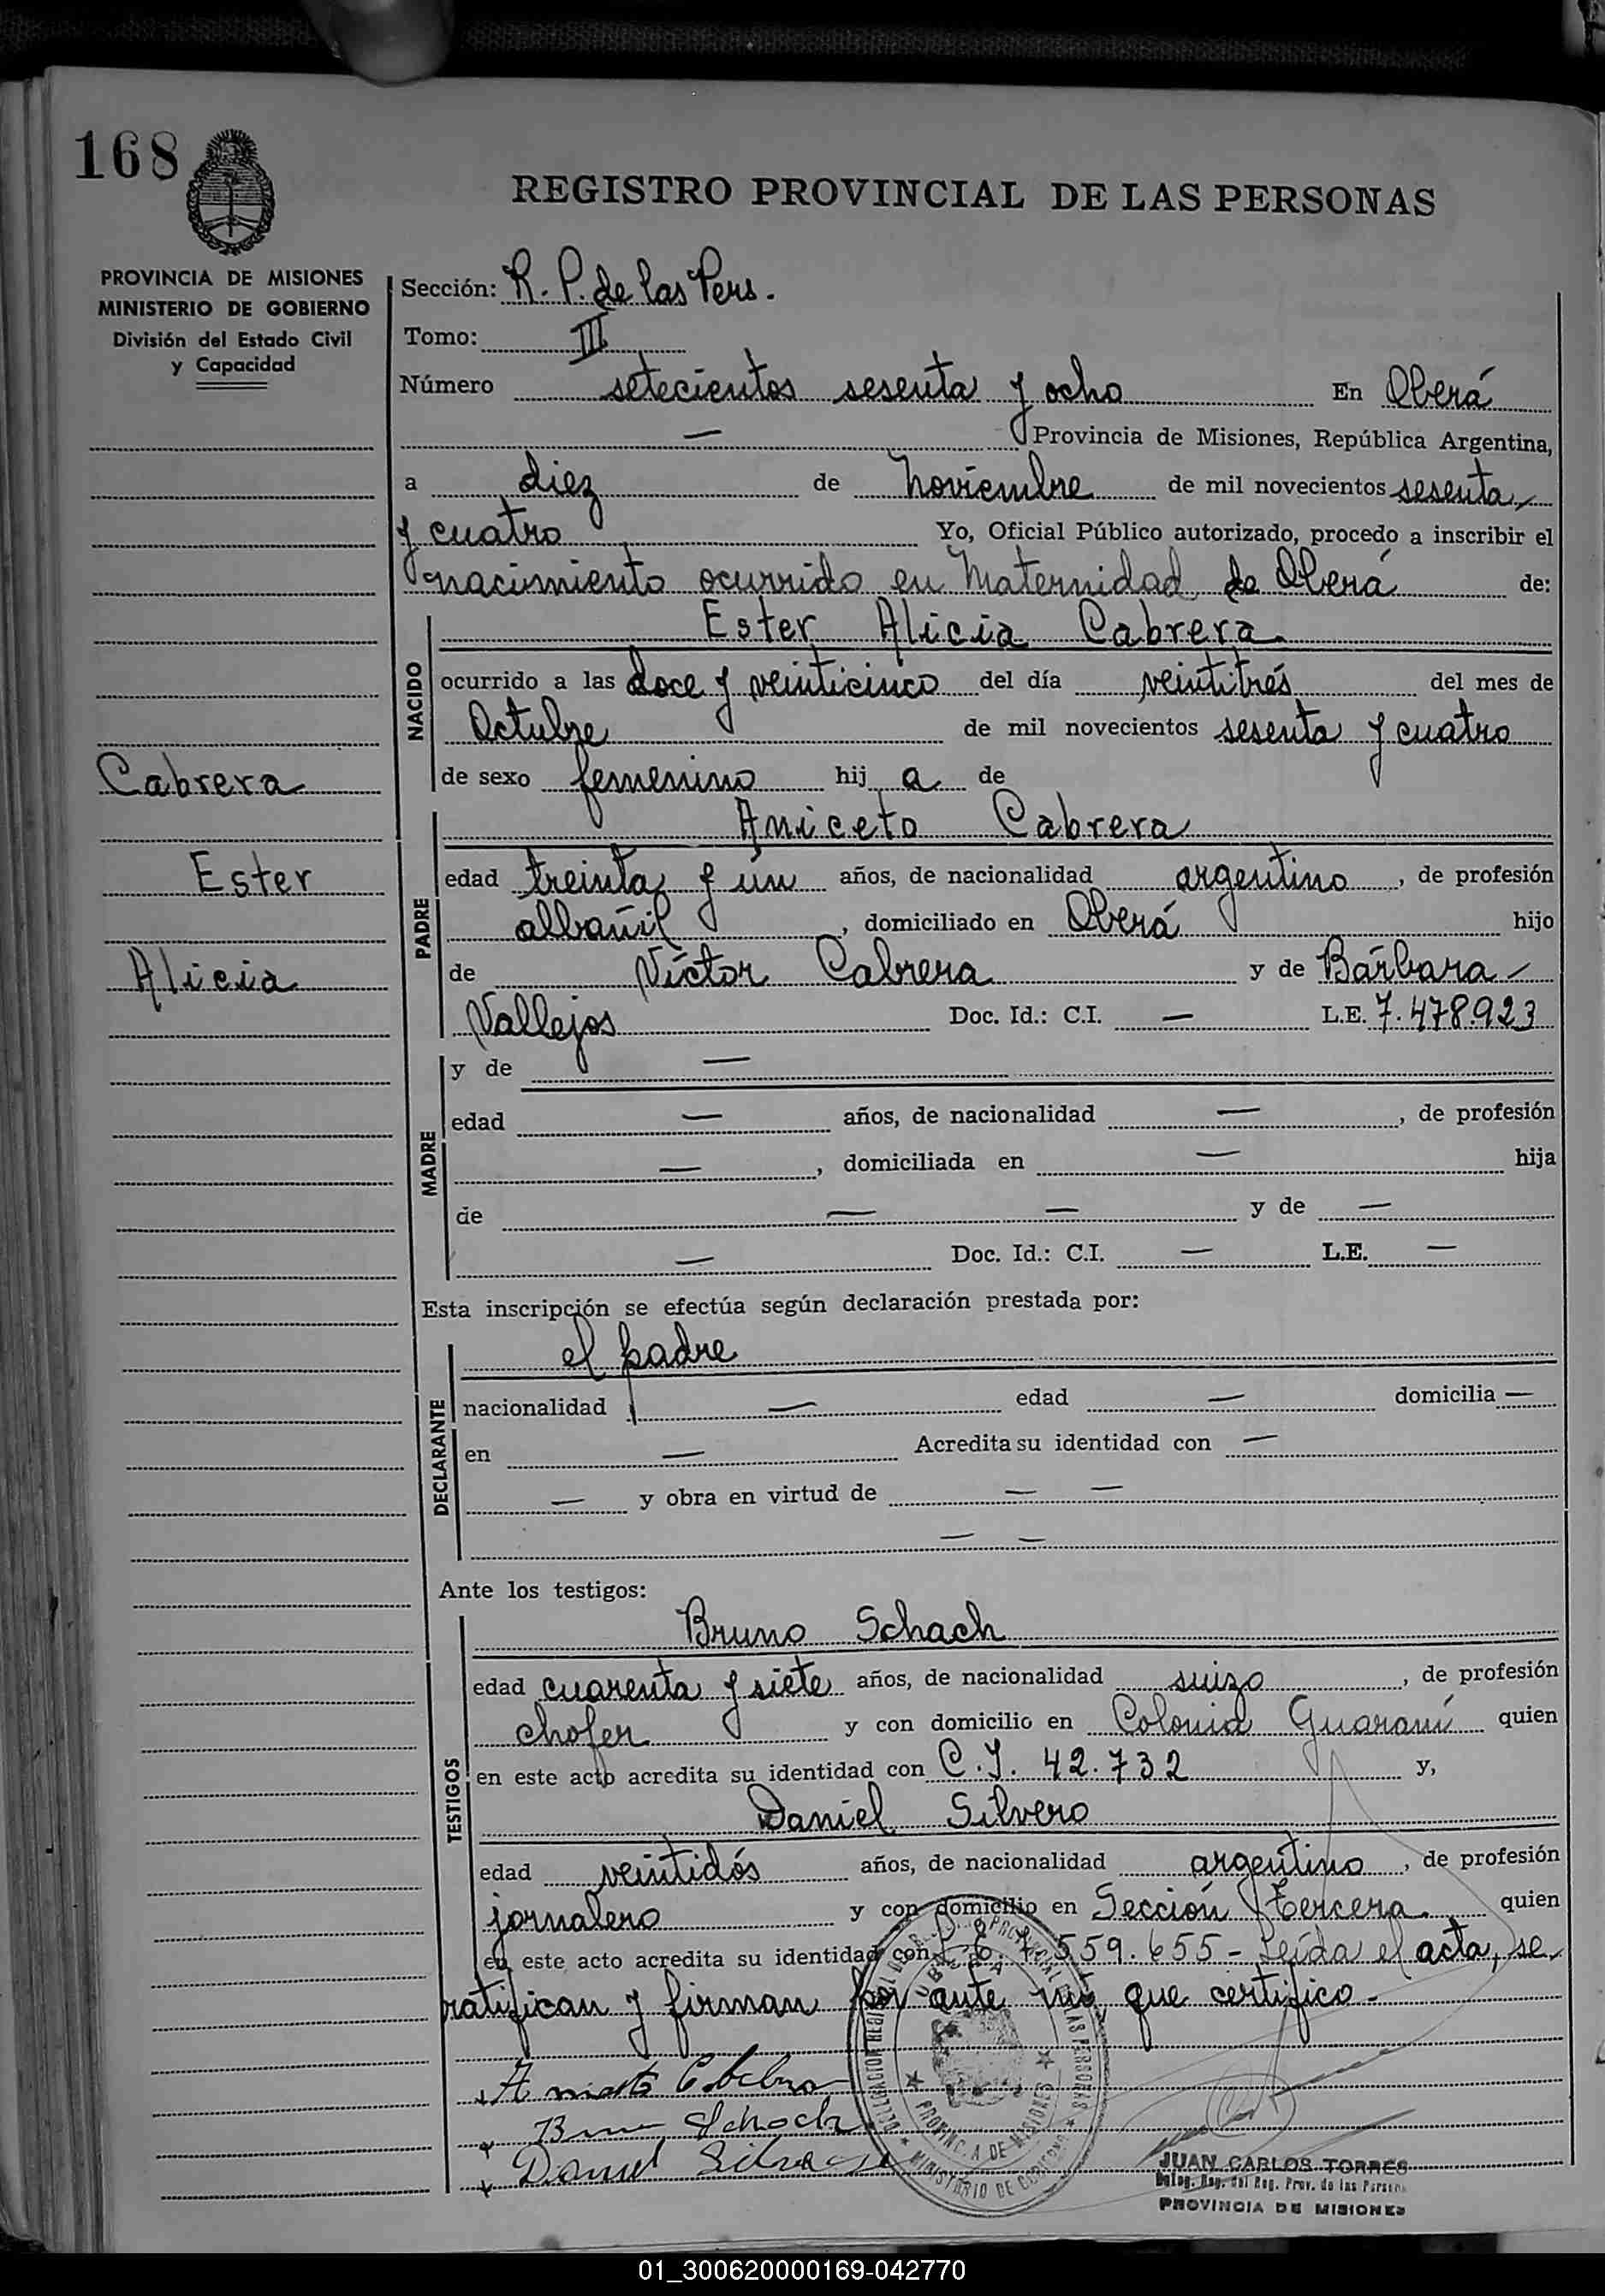 168
REGISTRO PROVINCIAL DE LAS PERSONAS
PROVINCIA DE MISIONES
MINISTERIO DE GOBIERNO
División del Estado Civil
y Capacidad
Cabrera
Ester
Alicia
Sección: R. P. de las Pers.
Tomo: III
Número setecientos sesenta y ocho En Oberá
— Provincia de Misiones, República Argentina,
a diez de noviembre de mil novecientos sesenta
y cuatro Yo, Oficial Público autorizado, procedo a inscribir el
nacimiento ocurrido en Maternidad de Oberá de:
NACIDO
Ester Alicia Cabrera
ocurrido a las doce y veinticinco del día veintitrés del mes de
Octubre de mil novecientos sesenta y cuatro
de sexo femenino hij a de
PADRE
Aniceto Cabrera
edad treinta y un años, de nacionalidad argentino, de profesión
albañil, domiciliado en Oberá hijo
de Víctor Cabrera y de Bárbara —
Vallejos Doc. Id.: C.I. — L.E. 7.478.923
MADRE
y de —
edad — años, de nacionalidad —, de profesión
—, domiciliada en — hija
de — — y de —
— Doc. Id.: C.I. — L.E. —
Esta inscripción se efectúa según declaración prestada por:
DECLARANTE
el padre
nacionalidad — edad — domicilia —
en — Acredita su identidad con —
— y obra en virtud de — —
— —
Ante los testigos:
TESTIGOS
Bruno Schach
edad cuarenta y siete años, de nacionalidad suizo, de profesión
chofer y con domicilio en Colonia Guaraní quien
en este acto acredita su identidad con C.I. 42.732 y,
Daniel Silvero
edad veintidós años, de nacionalidad argentino, de profesión
jornalero y con domicilio en Sección Tercera quien
en este acto acredita su identidad con 559.655 - Leída el acta, se
ratifican y firman por ante mí, que certifico -
Bruno Schach
Daniel
PROVINCIA DE MISIONES
MINISTERIO DE GOBIERNO
JUAN CARLOS TORRES
Deleg. Reg. del Reg. Prov. de las Person
PROVINCIA DE MISIONES
01_300620000169-042770